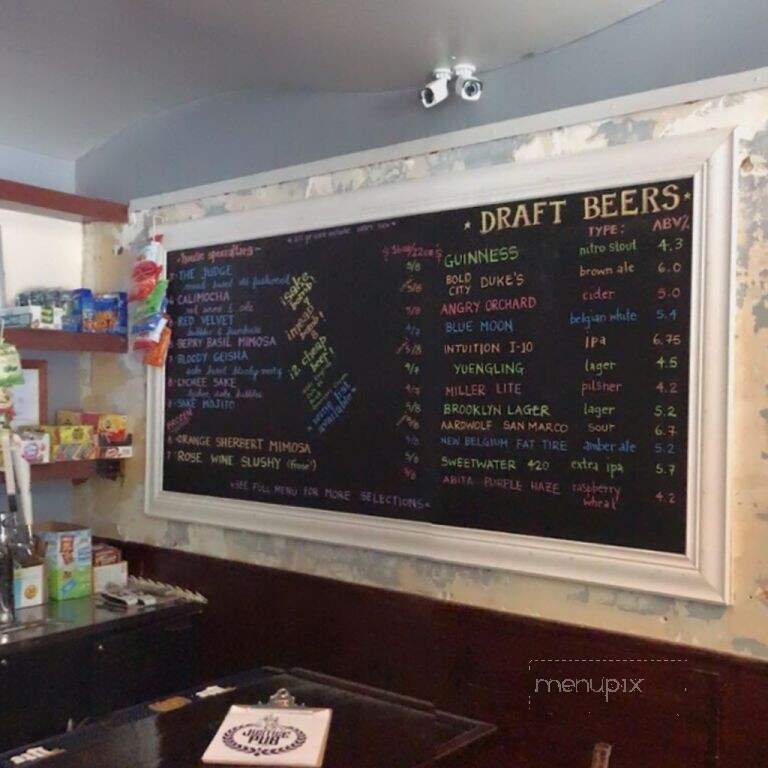 DRAFT BEERS
TYPE: ABV%
GUINNESS nitro stout 4.3
BOLD CITY DUKE'S brown ale 6.0
ANGRY ORCHARD cider 5.0
BLUE MOON belgian white 5.4
INTUITION I-10 ipa 6.75
YUENGLING lager 4.5
MILLER LITE pilsner 4.2
BROOKLYN LAGER lager 5.2
AARDWOLF SAN MARCO sour 6.7
NEW BELGIUM FAT TIRE amber ale 5.2
SWEETWATER 420 extra ipa 5.7
ABITA PURPLE HAZE raspberry wheat 4.2
~House specialties~
THE JUDGE
CALIMOCHA
red wine & cola
RED VELVET
BERRY BASIL MIMOSA
BLOODY GEISHA
sake based bloody mary
LYCHEE SAKE
SAKE MOJITO
FROZEN
ORANGE SHERBERT MIMOSA
ROSE WINE SLUSHY (Frosé)
*SEE FULL MENU FOR MORE SELECTIONS*
sake
bomb
cheap
beer!
available*
JUSTICE
PUB
menupix